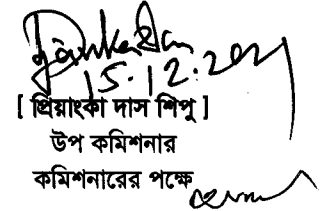 15.12.2021
[ প্রিয়াংকা দাস শিপু ]
উপ কমিশনার
কমিশনারের পক্ষে